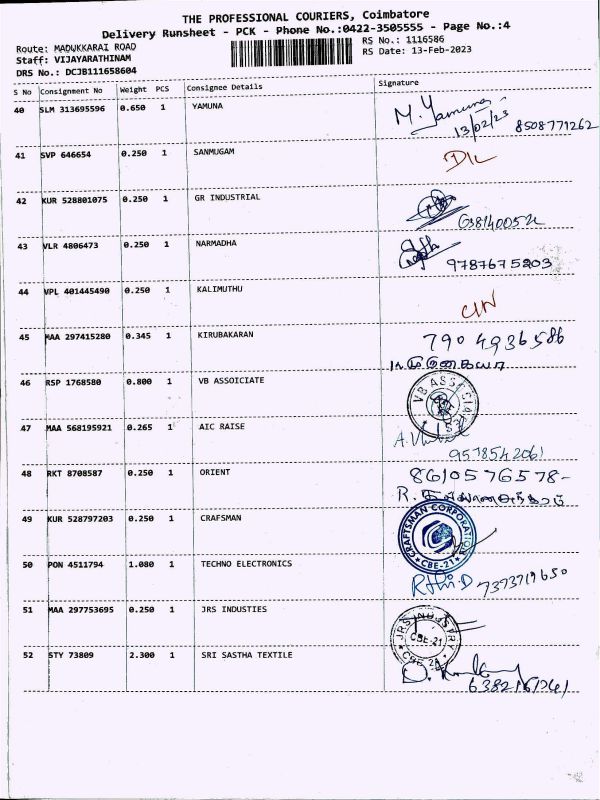 THE PROFESSIONAL COURIERS, Coimbatore
Delivery Runsheet - PCK - Phone No.:0422-3505555 - Page No.:4
Route: MADUKKARAI ROAD
RS No.: 1116586
Staff: VIJAYARATHINAM
RS Date: 13-Feb-2023
DRS No.: DCJB111658604
S No Consignment No Weight PCS Consignee Details Signature
40 SLM 313695596 0.650 1 YAMUNA M. Yamuna
13/02/23 8508771262
41 SVP 646654 0.250 1 SANMUGAM DIL
42 KUR 528801075 0.250 1 GR INDUSTRIAL
43 VLR 4806473 0.250 1 NARMADHA
9787675203
44 VPL 401445490 0.250 1 KALIMUTHU
45 MAA 297415280 0.345 1 KIRUBAKARAN 7904936586
46 RSP 1768580 0.800 1 VB ASSOICIATE VB ASSOCIATES
47 MAA 568195921 0.265 1 AIC RAISE
9578542061
48 RKT 8708587 0.250 1 ORIENT 8610576578-
49 KUR 528797203 0.250 1 CRAFSMAN CRAFTSMAN CORPORATION
CBE-21
50 PON 4511794 1.080 1 TECHNO ELECTRONICS
7373719650
51 MAA 297753695 0.250 1 JRS INDUSTIES JRS INDUSTRY
CBE-21
52 STY 73809 2.300 1 SRI SASTHA TEXTILE